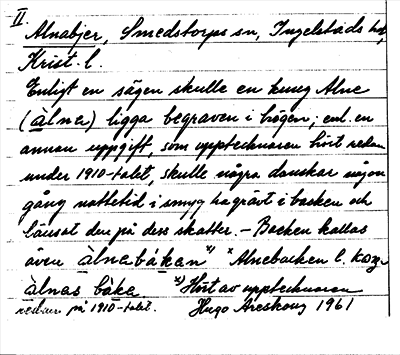 II
Alnabjer, Smedstorps sn, Ingelstads hd,
Krist. l.
Enligt en sägen skulle en kung Alne
(àlna) ligga begraven i högen; enl. en
annan uppgift, som upptecknaren hört redan
under 1910-talet, skulle några danskar någon
gång nattetid i smyg ha grävt i backen och
länsat den på dess skatter. – Backen kallas
även àlnabákan x) x Alnebacken l. Kong
àlnas báka x) Hört av upptecknaren
redan på 1910-talet. Hugo Areskoug 1961